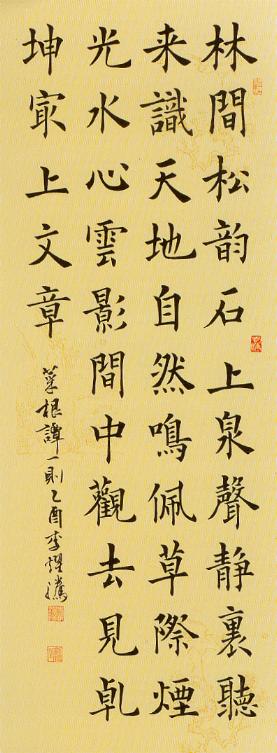 林間松韵石上泉聲靜裏聽
来識天地自然鳴佩草際煙
光水心雲影間中觀去見乹
坤冣上文章
菜根譚一則乙酉李燿騰